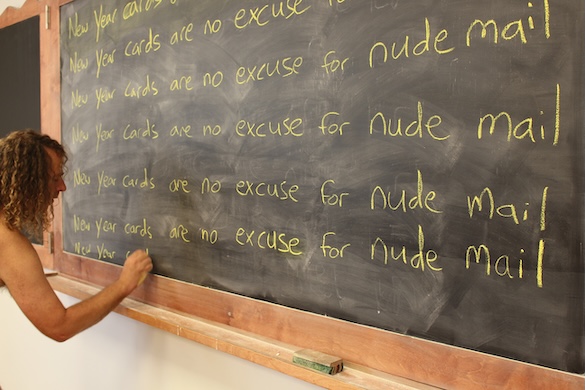 New Year cards are no excuse for nude mail
New Year cards are no excuse for nude mail
New Year cards are no excuse for nude mail
New Year cards are no excuse for nude mail
New Year cards are no excuse for nude mail
New Year